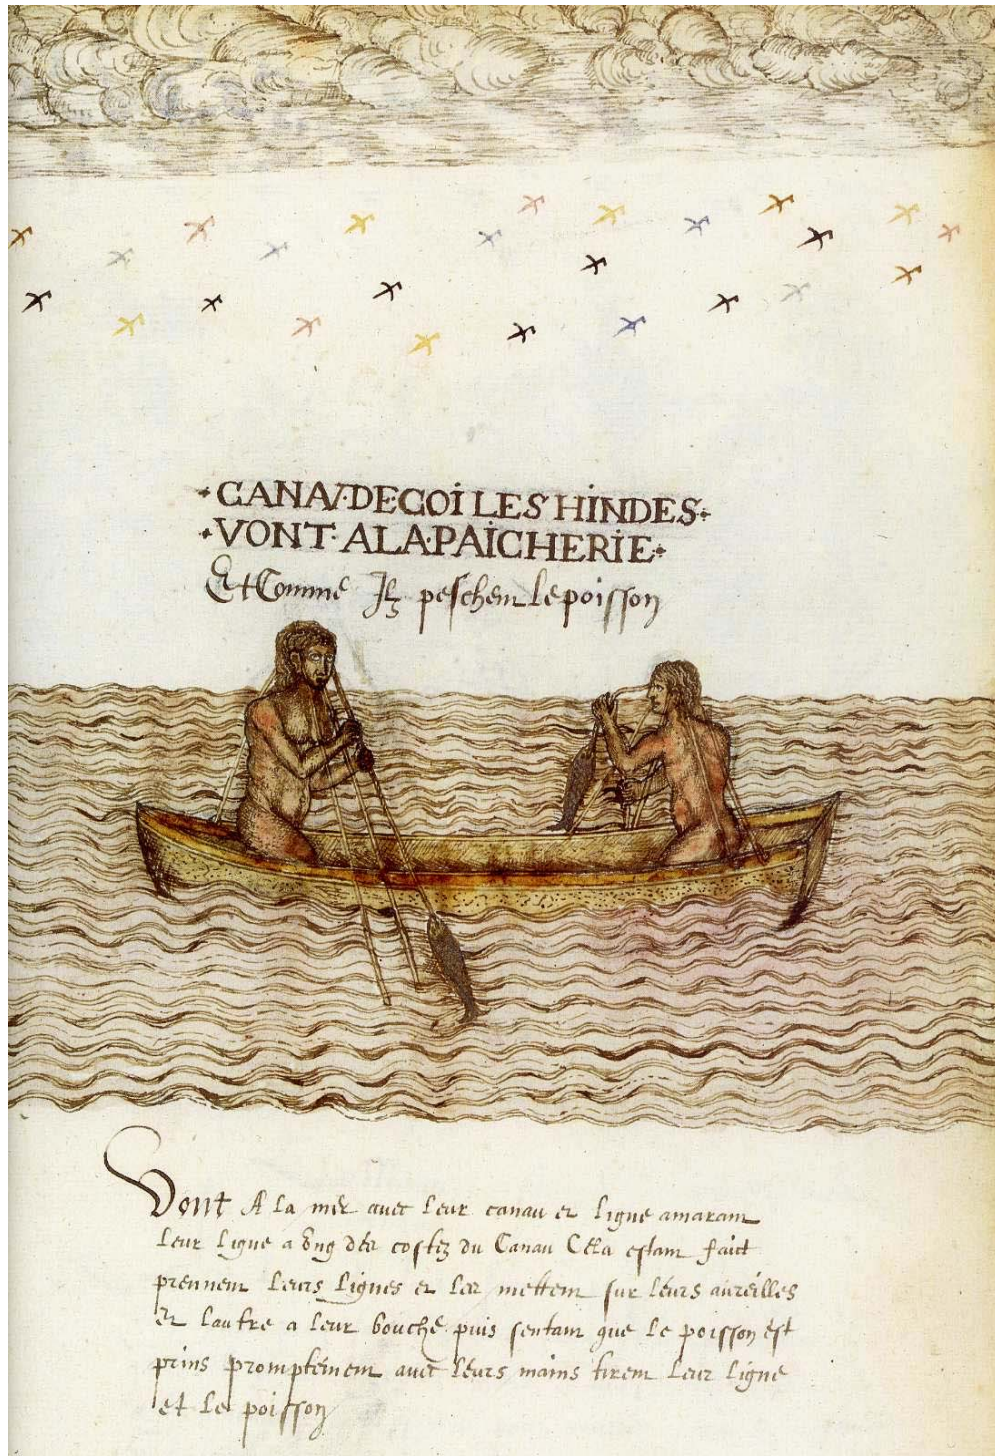 ·CANAV·DE·COI LES HINDES·
·VONT·A LA·PAICHERIE·
Et Comme Ilz peschent le poisson
Vont A la mer avec leur canau et ligne amarant
leur ligne a ung des costez du Canau Cela estant faict
prennent leurs lignes et les mettent sur leurs aureilles
et lautre a leur bouche puis sentant que le poisson est
prins promptement avec leurs mains tirent leur ligne
et le poisson